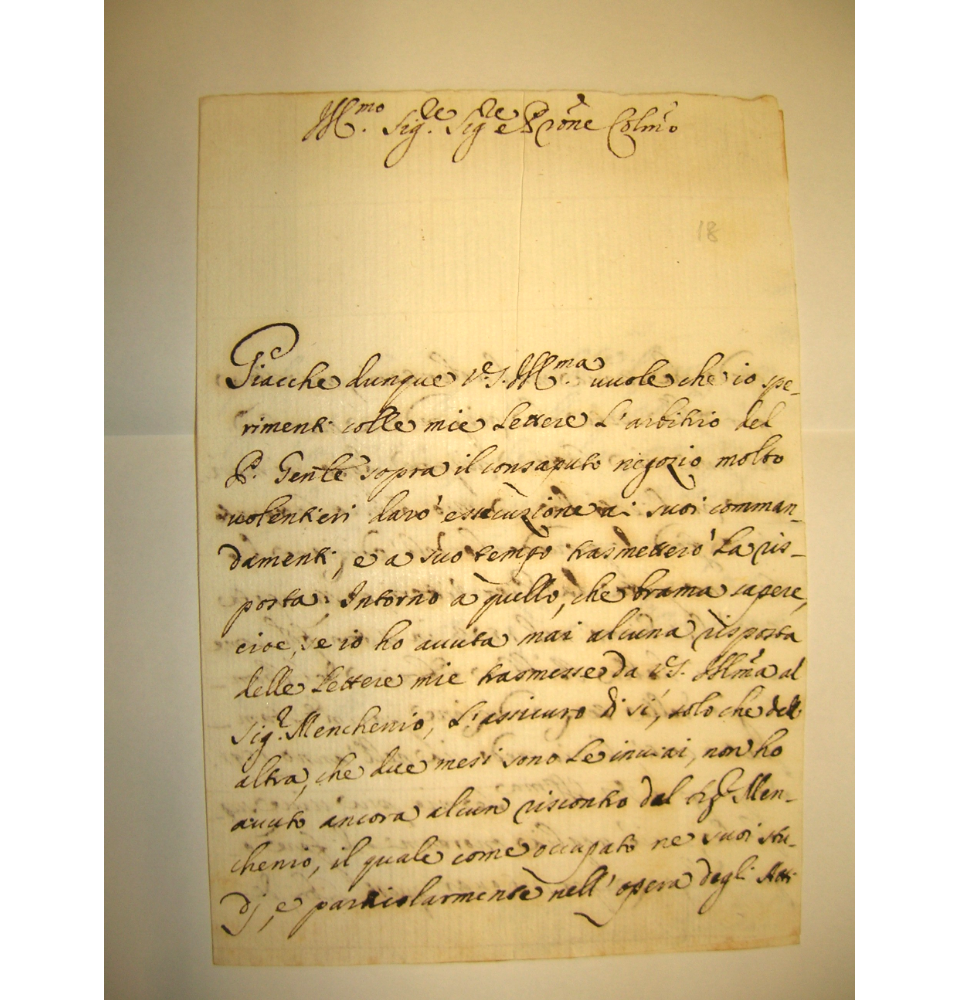 Ill.mo Sig.re Sig.re e Prõne Colm̃o
18
Giacche dunque V.S. Ill.ma vuole che io spe-
rimenti colle mie Lettere L'arbitrio del
P. Gentle sopra il consaputo negozio molto
volentieri darò essecuzione ai suoi comman-
damenti, e a suo tempo trasmetterò La ris-
posta. Intorno a quello, che brama sapere,
cioe, se io ho avuta mai alcuna risposta
delle Lettere mie trasmesse da V.S. Illm̃a al
Sig.r Menchenio, L'assicuro di sì, solo che dell
altra, che due mesi sono Le inviai, non ho
avuto ancora alcun riscontro dal Sig.r Men-
chenio, il quale come occupato ne suoi stu-
dj, e particolarmente nell' opera degli Atti